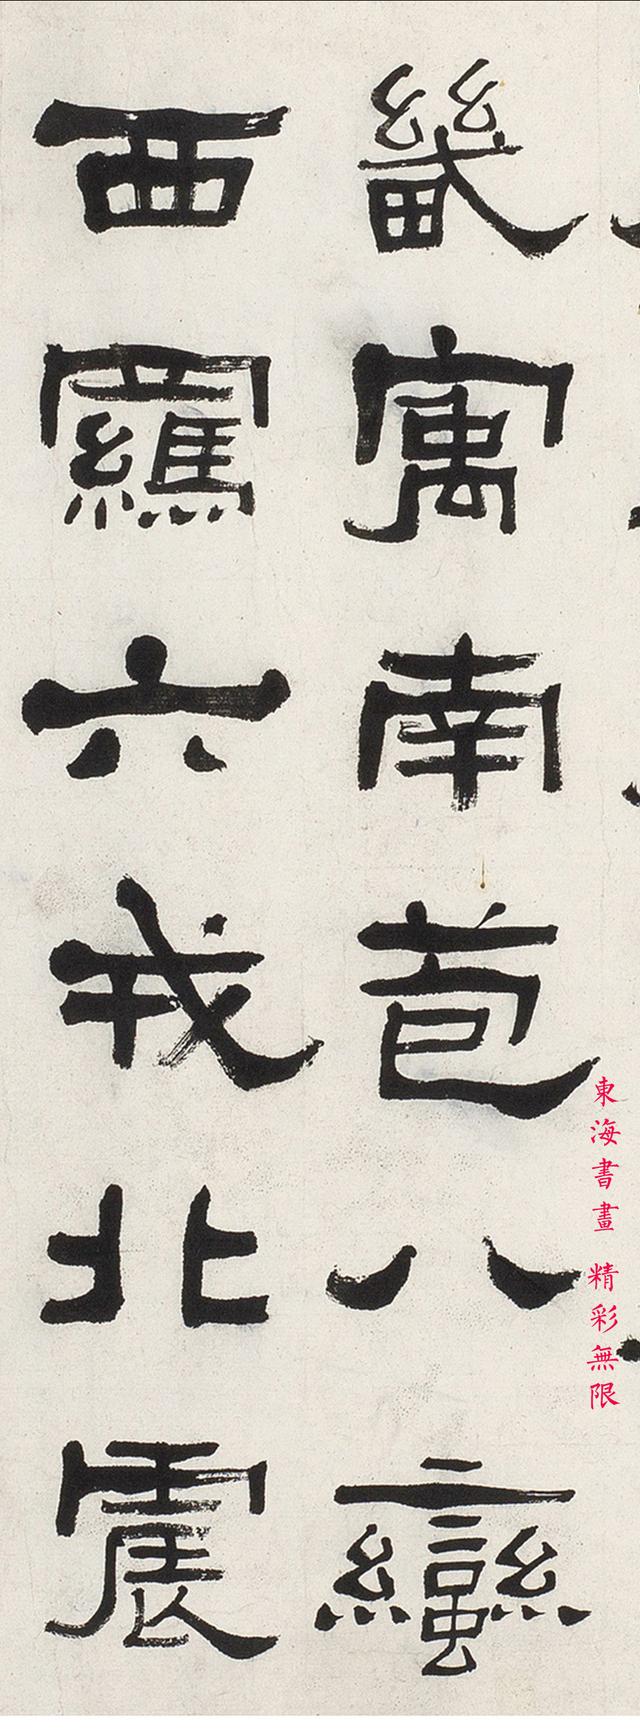 畿寓南苞八蠻
西羈六戎北震
東海書畫 精彩無限